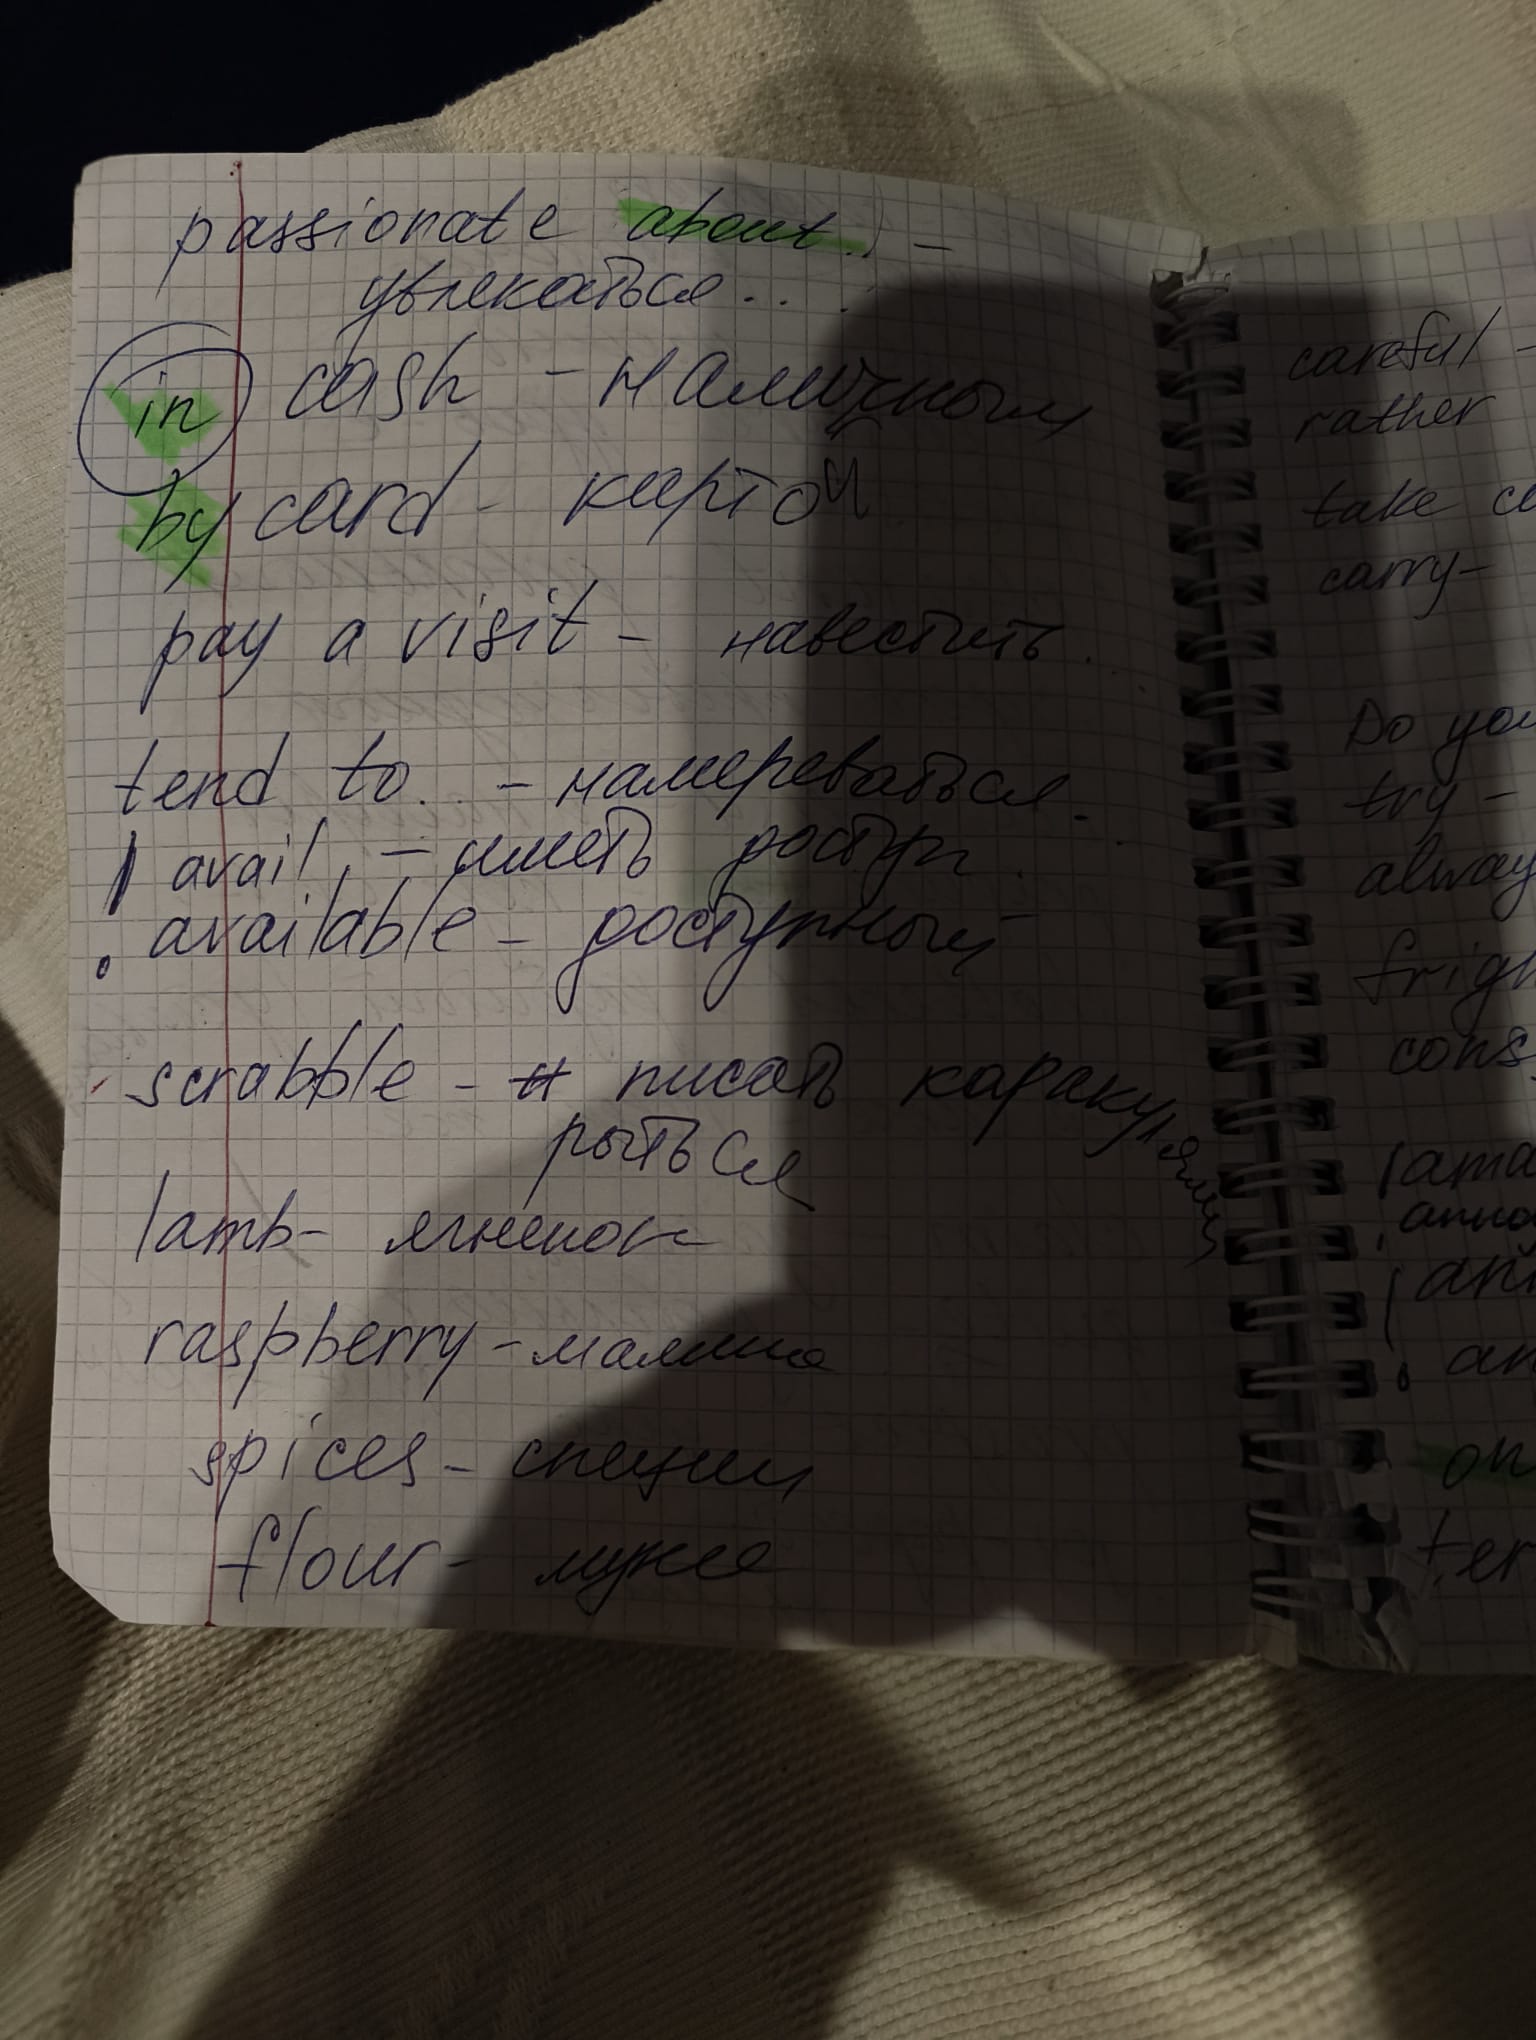 passionate about..) -
увлекаться...
in cash - наличными
by card - картой
pay a visit - навестить.
tend to... - намереваться.
avail. - иметь доступ.
available - доступный
scrabble - писать каракулями
рыться
lamb - ягненок
raspberry - малина
spices - специи
flour - мука
careful -
rather
take
carry -
Do you
try -
always